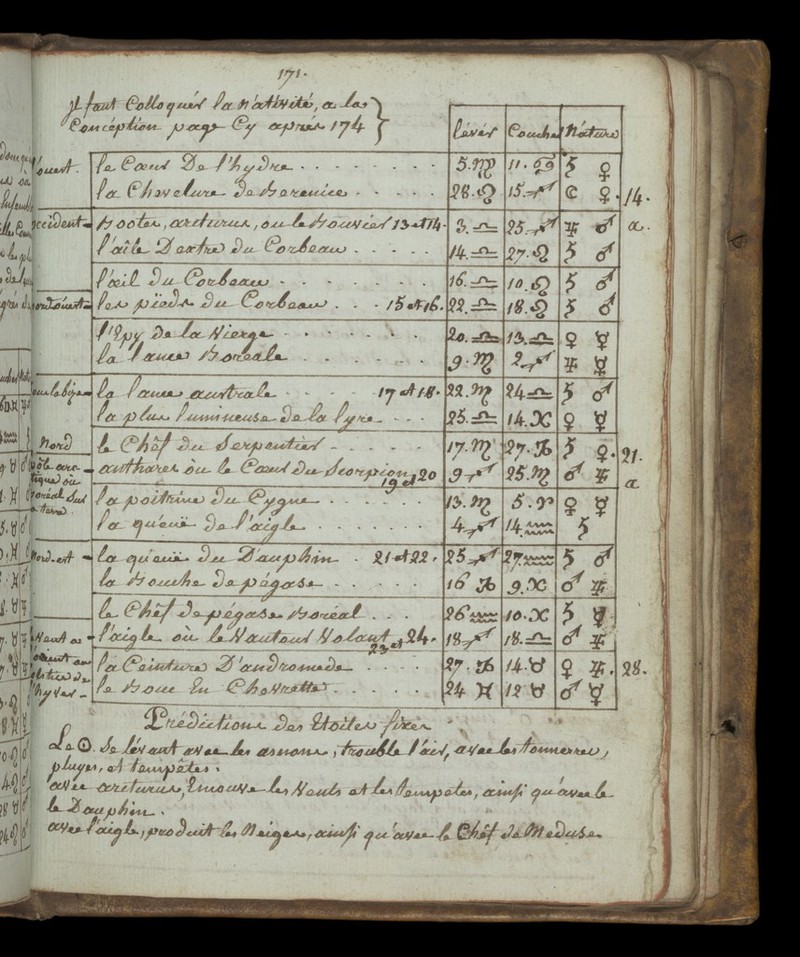 171.
Jl faut Colloquér la nativité, a la
Concéption page Cy aprés 174
lévér Couché Nature
ouest. le Cœur De l'hydre 5.♍ 11.♋ ♄ ♀
la Chevelure de Berenice 28.♌ 15.♐ ☾ ♀. 14.
occident Bootes, arcturus, ou le Bouviér 13 et 14. 3.♎ 25.♐ ♃ ♂ a.
l'aîle Dextre du Corbeau 14.♎ 27.♌ ♄ ♂
l'œil du Corbeau 16.♎ 10.♌ ♄ ♂
nord ouest les pïeds du Corbeau 15 et 16. 22.♎ 18.♌ ♄ ♂
l'Epy de la Vierge 20.♎ 13.♎ ♀ ☿
la lance Boreale 9.♏ 2.♐ ♃ ☿
la lance australe 17 et 18. 22.♏ 24♎ ♄ ♂
la plus lumineuse de la lyre 25.♎ 14.♓ ♀ ☿
Nord le Chêf du Serpentiér 17.♏ 27.♑ ♄ ♀. 21.
pôle arctique où antharer où le Cœur du Scorpion 19 et 20 9♐ 25.♏ ♂ ♃ a
boréal sur la terre. la poitrine du Cygne 13.♏ 5.♈ ♀ ☿
la queuë de l'aigle 4♐ 14♒ ♄
Nord-est la queuë du Dauphin 21 et 22. 25♐ 27♒ ♄ ♂
la Bouche de pégase 16 ♑ 9.♓ ♂ ♃
le Chêf de pégase Boréal 26♒ 10.♓ ♄ ☿
l'aigle où le Vautour Volant 23 et 24. 18♐ 18.♎ ♂ ♃
la Ceinture D'andromede 27.♑ 14.♉ ♀ ♃. 28.
hyver le Bouc En Chevrette 24 ♓ 12 ♉ ♂ ☿
Prédictions des Etoiles fixes
Le ☉. Se lévant avec les asnons, trouble l'air, avec les tonnerres,
pluyes, et tempêtes.
avec arcturus, Emouve les Vents et les tempetes, ainsi qu'avec le
le Dauphin.
avec l'aigle, produit les Neiges, ainsi qu'avec le Chêf de Meduse